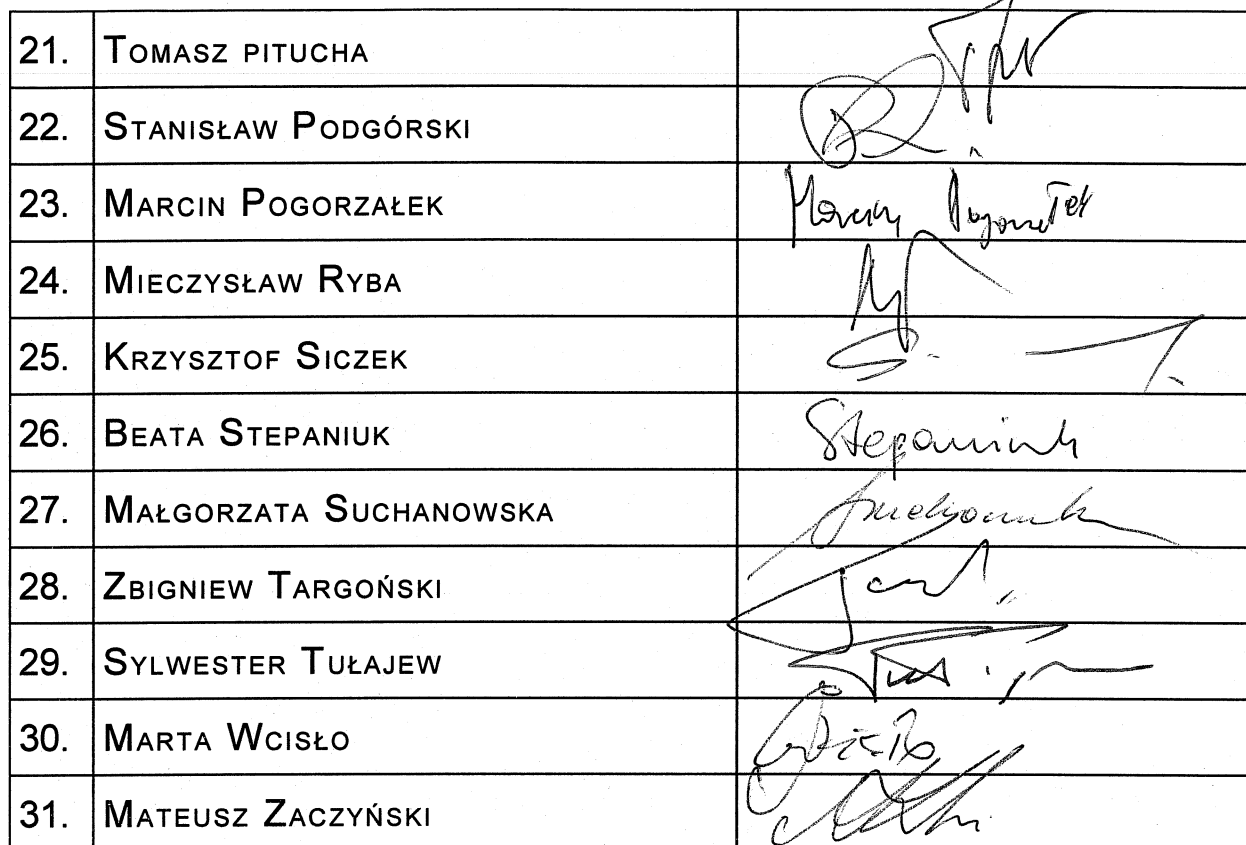 21. Tomasz pitucha
22. Stanisław Podgórski
23. Marcin Pogorzałek Marcin Pogorzałek
24. Mieczysław Ryba
25. Krzysztof Siczek
26. Beata Stepaniuk Stepaniuk
27. Małgorzata Suchanowska
28. Zbigniew Targoński
29. Sylwester Tułajew
30. Marta Wcisło
31. Mateusz Zaczyński